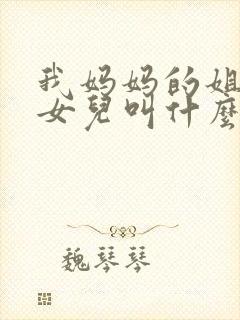 我妈妈的姐
女兒叫什麼
魏琴琴